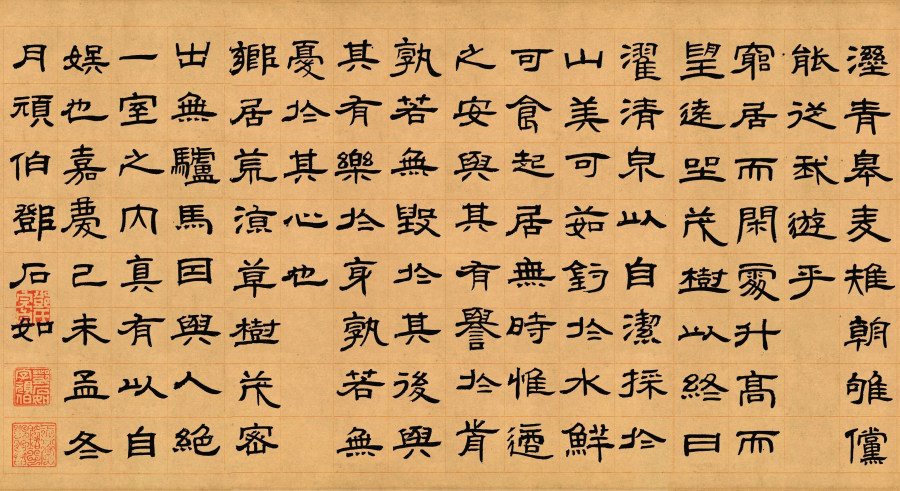 溼青皋麦雉朝雊儻
能從我遊乎
窮居而閑處升高而
望遠坐茂樹以終日
濯清泉以自潔採於
山美可茹釣於水鮮
可食起居無時惟適
之安與其有譽於前
孰若無毀於其後與
其有樂於身孰若無
憂於其心也
鄉居荒涼草樹茂密
出無驢馬因與人絕
一室之內真有以自
娛也嘉慶己未孟冬
月頑伯鄧石如